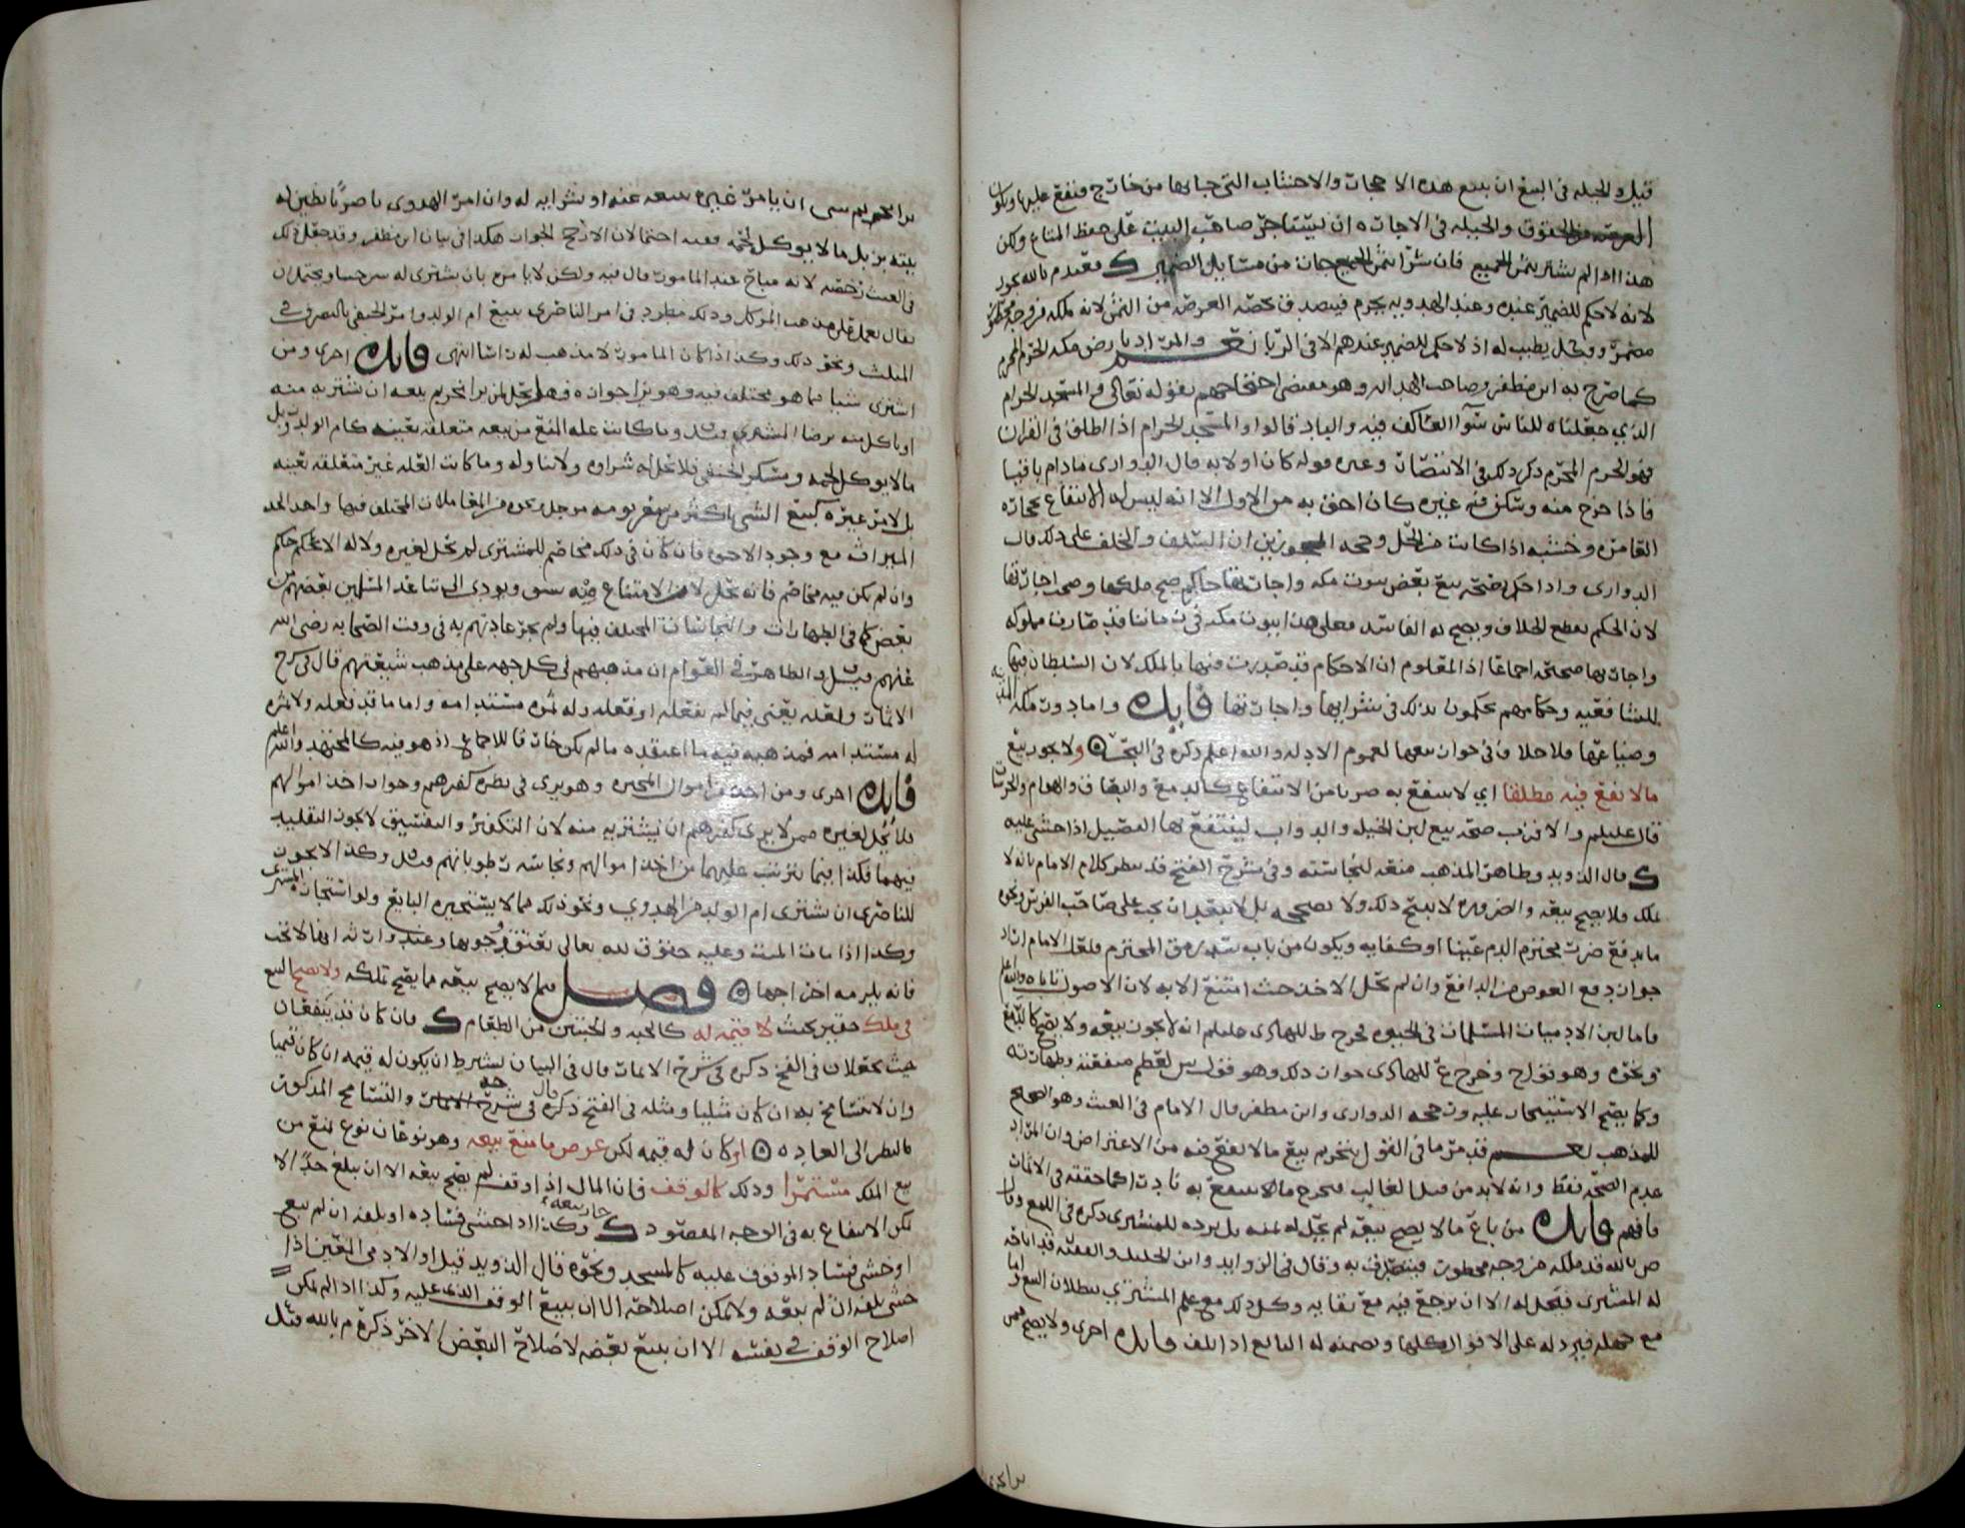 قيل والحيله في البيع ان يبيع هذه الاحجار والاخشاب التي جابها من خارج فتقع عليها ويكون
الحقوق والحيله في الاجاره ان يستاجر صاحب البيت على حفظ المتاع ولكن
هذا اذا لم يشتر بثمن الجميع فان شرا بثمن الجميع جان من مسايل الضمير
لانه لا حكم للضمير عنده وعند الهدويه يحرم فيتصدق بحصه العرصه من الثمن لانه ملكه من وجه محظور
مضمر وقيل يطيب له اذ لا حكم للضمير عندهم الا في الربا نعم والمراد بارض مكه الحرم المحرم
كما صرح به ابن مظفر وصاحب الهدايه وهو مقتضى احتجاجهم بقوله تعالى والمسجد الحرام
الذي جعلناه للناس سوآ العاكف فيه والباد قالوا والمسجد الحرام اذا اطلق في القران
فهو الحرم المحرم ذكر ذلك في الانتصار وغيره قوله كان اولا به قال الدواري ما دام باقيا
فاذا خرج منه وسكن فيه غيره كان احق به من الاول الا انه ليس له الانتفاع بحجاره
العامره وخشبه اذا كانت من الحل وحجه المجوزين ان السلف والخلف على ذلك قال
الدواري واذا حكم بصحه بيع بعض بيوت مكه واجارتها حاكم صح ملكها وصح اجارتها
لان الحكم يقطع الخلاف ويصح به الفاسد فعلى هذا بيوت مكه في زماننا قد صارت مملوكه
واجارتها صحيحه اجماعا اذ المعلوم ان الاحكام قد صدرت فيها بالملك لان السلطان فيها
للشافعيه وحكامهم يحكمون بذلك في شرايها واجارتها فايده واما دور مكه
وضياعها فلا خلاف في جواز بيعها لعموم الادله والله اعلم ذكره في البحر ولا يجوز بيع
ما لا نفع فيه مطلقا اي لا ينتفع به ضربا من الانتفاع كالدمع والبصاق والهوام والحرشات
قال عليلم والاقرب صحه بيع لبن الخيل والدواب لينتفع بها الفصيل اذا خشي عليه
قال الذويد وظاهر المذهب منعه لنجاسته وفي شرح الفتح قد ينظر كلام الامام بانه لا
يملك فلا يصح بيعه والضروره لا تبيح ذلك ولا تصححه بل لا يبعد ان يجب على صاحب الفرس ونحوه
ما يدفع ضرر محترم الدم عينا او كفايه ويكون من باب سد رمق المحترم فلعل الامام اراد
جواز دفع العوض من الدافع وان لم يحل الاخذ حيث امتنع الا به لان الاصول تاباه والله اعلم
فاما لبن الادميات المسلمات في الحيوه فخرج ط للهادي عليلم انه لا يجوز بيعه ولا يصح كالدمع
ونحوه وهو قول ح وخرج ع للهادي جواز ذلك وهو قول س لعظم منفعته وطهارته
وكما يصح الاستيجار عليه ورجحه الدواري وابن مظفر قال الامام في الغيث وهو الصحيح
للمذهب نعم قد مر ما في القول بتحريم بيع ما لا نفع فيه من الاعتراض وان المراد
عدم الصحه فقط وانه لا بد من قيد الغالب فيخرج ما لا ينتفع به نادرا كما حققه في الاثمار
فافهم فايده من باع ما لا يصح بيعه لم يحل له ثمنه بل يرده للمشتري ذكره في اللمع وقال
ص بالله قد ملكه من وجه محظور فيتصدق به وقال في الزوايد وابن الخليل والفقيه قد اباحه
له المشتري فيحل له الا ان يرجع فيه مع بقايه وكل ذلك مع علم المشتري ببطلان البيع واما
مع جهله فيرد له على الاقوال كلها ويضمنه له البايع اذا تلف فايده اخرى ولا يصح ممن
يرا تحريم شي ان يامر غيره ببيعه عنه او بشرايه له وان امر الهدوي ناصريا يطبخ له
بيته بزبل ما لا يوكل لحمه ففيه احتمالان الارجح الجواز هكذا في بيان ابن مظفر وقد جعل ذلك
في الغيث رخصه لانه مباح عند المامور قال فيه ولكن لا يامره بان يشتري له سرجينا ويحتمل ان
يقال يعمل على مذهب الموكل وذلك مطرد في امر الناصري ببيع ام الولد وامر الحنفي بالتصرف في
المثلث ونحو ذلك وكذا اذا كان المامور لا مذهب له راسا انتهى فايده اخرى ومن
اشترى شيا مما هو مختلف فيه وهو يرا جوازه فهل يحل لمن يرا تحريم بيعه ان يشتريه منه
او ياكل منه برضا المشتري قيل وما كانت عله المنع من بيعه متعلقه بعينه كام الولد وزبل
ما لا يوكل لحمه ومسكر الحنفي فلا يحل له شراوه ولا تناوله وما كانت العله غير متعلقه بعينه
بل لامر غيره كبيع الشي باكثر من سعر يومه موجلا ونحوه من المعاملات المختلف فيها واخذ الجد
الميراث مع وجود الاخوه فان كان في ذلك مخاصم للمشتري لم يحل لغيره ولا له الا بحكم حاكم
وان لم يكن فيه مخاصم فانه يحل لان الامتناع منه يشق ويودي الى تباعد المسلمين بعضهم من
بعض كما في الطهارات والنجاسات المختلف فيها ولم تجر عادتهم به في وقت الصحابه رضي الله
عنهم قيل والظاهر في العوام ان مذهبهم في كل جهه على مذهب شيعتهم قال في شرح
الاثمار ولعله يعني فيما لم يفعله او فعله وله ثمره مستدامه واما ما قد فعله ولا ثمره
له مستدامه فمذهبه فيه ما اعتقده ما لم يكن خارقا للاجماع اذ هو فيه كالمجتهد والله اعلم
فايده اخرى ومن اخذ من اموال المجبره وهو يرى في نظره كفرهم وجواز اخذ اموالهم
فلا يحل لغيره ممن لا يرى كفرهم ان يشتريه منه لان التكفير والتفسيق لا يجوز التقليد
فيهما فكذا فيما يترتب عليهما من اخذ اموالهم ونجاسه رطوباتهم قيل وكذا لا يجوز
للناصري ان يشتري ام الولد من الهدوي ونحو ذلك مما لا يستجيزه البايع ولو استجازه المشتري
وكذا اذا مات الميت وعليه حقوق لله تعالى يعتقد وجوبها وعند وارثه انها لا تجب
فانه يلزمه اخراجها فصل فيما لا يصح بيعه مما يصح تملكه ولا يصح البيع
في ملك حقير بحيث لا قيمه له كالحبه والحبتين من الطعام فان كان قد يتفقان
حيث يجعلان في الفخ ذكره في شرح الاثمار قال في البيان يشترط ان يكون له قيمه ان كان قيميا
وان لا يتسامح به ان كان مثليا ومثله في الفتح ذكره قال في شرحه والتسامح المذكور
بالنظر الى العاده او كان له قيمه لكن عرض ما منع بيعه وهو نوعان نوع لمنع من
بيع الملك مستمرا وذلك كالوقف فان المال اذا وقف لم يصح بيعه الا ان يبلغ حدا لا
يمكن الانتفاع به في الوجه المقصود جاز بيعه وكذا اذا خشي فساده او تلفه ان لم يبع
او خشي فساد الموقوف عليه كالمسجد ونحوه قال الذويد قيل او الادمي المعين اذا
خشي تلفه ان لم يبعه ولا يمكن اصلاحه الا ان يبيع الوقف الذي عليه وكذا اذا لم يمكن
اصلاح الوقف في نفسه الا ان يبيع بعضه لاصلاح البعض الاخر ذكره م بالله قيل
يرا تحريم